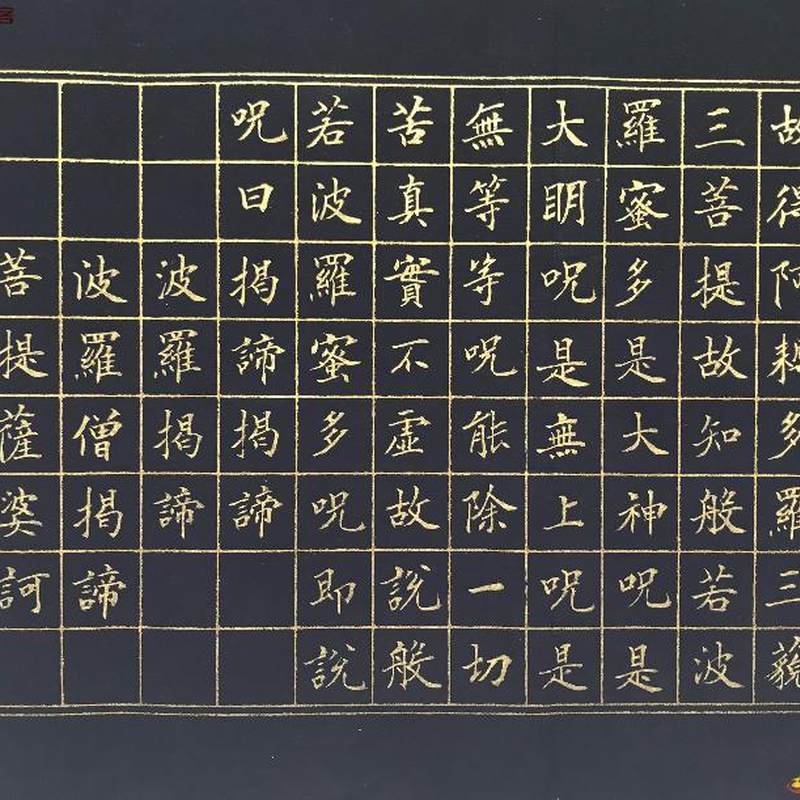 故得阿耨多羅三藐
三菩提故知般若波
羅蜜多是大神呪是
大明呪是無上呪是
無等等呪能除一切
苦真實不虛故說般
若波羅蜜多呪即說
呪曰揭諦揭諦
波羅揭諦
波羅僧揭諦
菩提薩婆訶